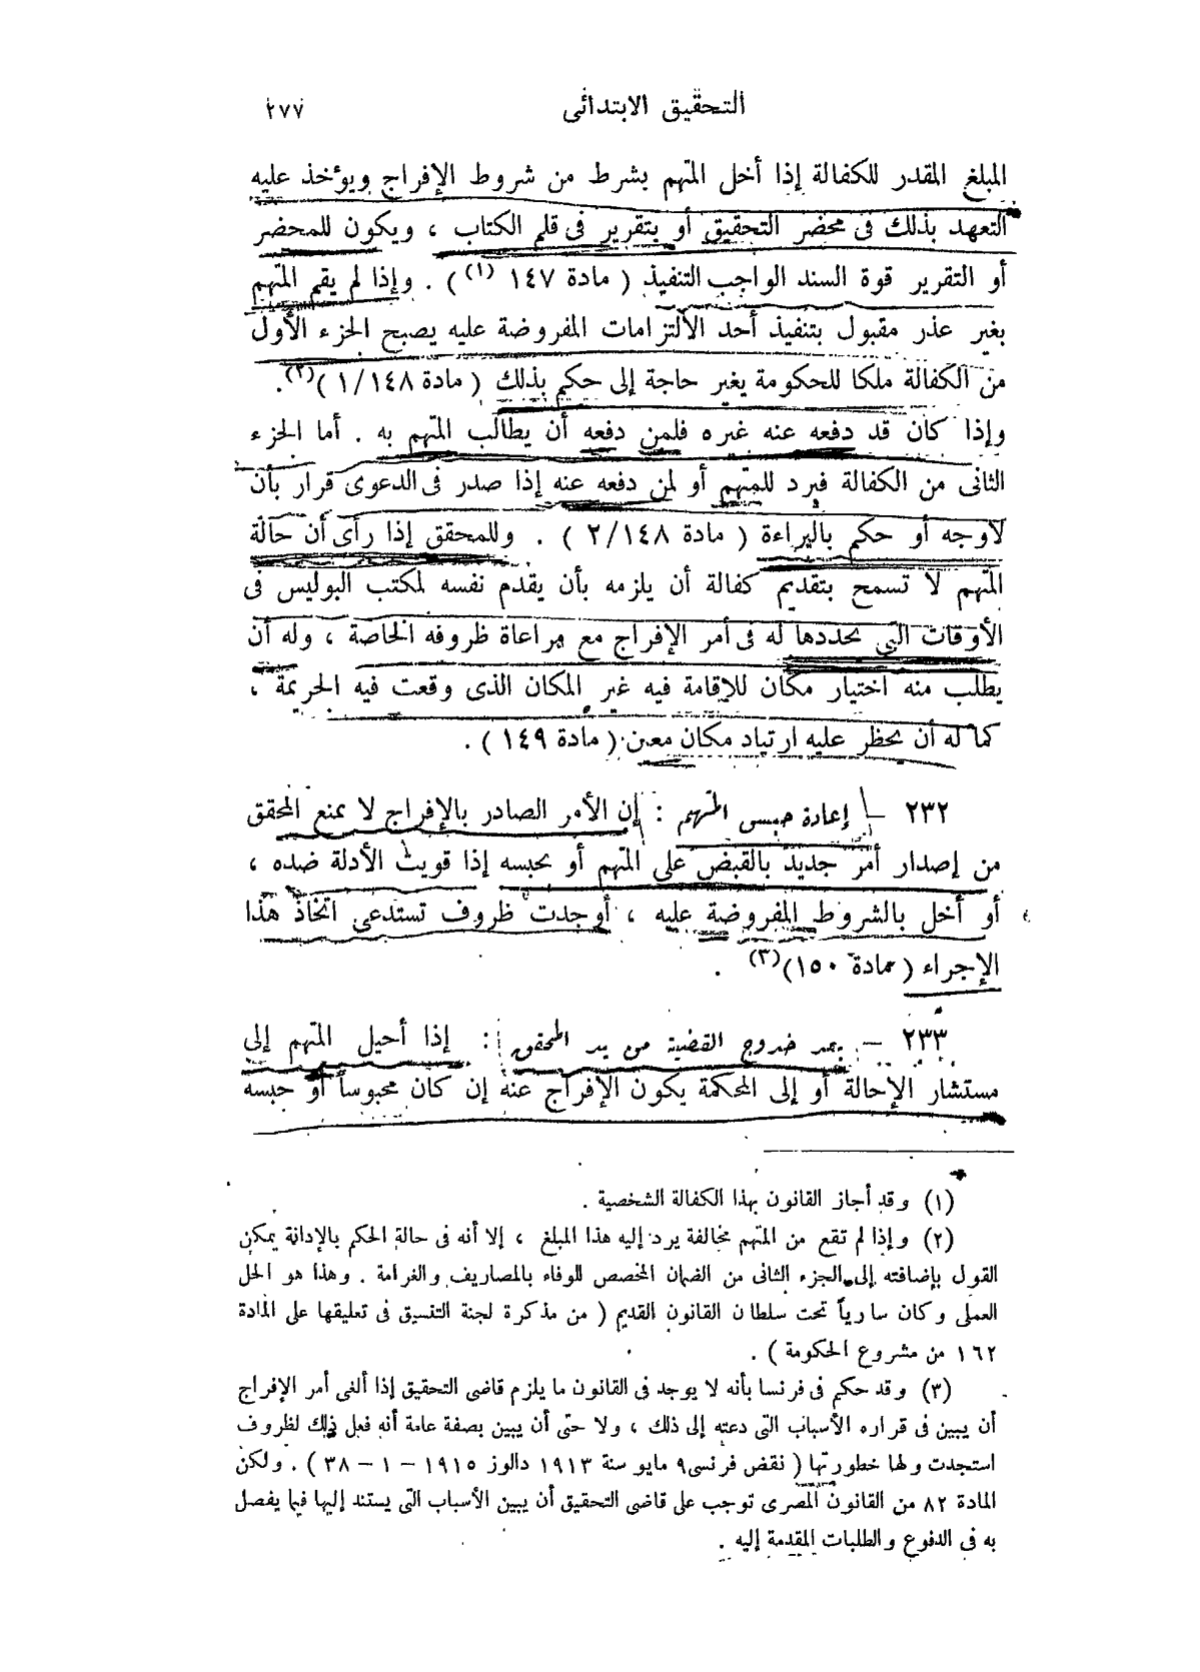 التحقيق الابتدائى
٢٧٧
المبلغ المقدر للكفالة إذا أخل المتهم بشرط من شروط الإفراج ويؤخذ عليه
التعهد بذلك فى محضر التحقيق أو بتقرير فى قلم الكتاب ، ويكون للمحضر
أو التقرير قوة السند الواجب التنفيذ ( مادة ١٤٧ (١) ) . وإذا لم يقم المتهم
بغير عذر مقبول بتنفيذ أحد الألتزامات المفروضة عليه يصبح الجزء الأول
من الكفالة ملكا للحكومة بغير حاجة إلى حكم بذلك ( مادة ١/١٤٨ )(٢).
وإذا كان قد دفعه عنه غيره فلمن دفعه أن يطالب المتهم به . أما الجزء
الثانى من الكفالة فيرد للمتهم أو لمن دفعه عنه إذا صدر فى الدعوى قرار بأن
لاوجه أو حكم بالبراءة ( مادة ٢/١٤٨ ) . وللمحقق إذا رأى أن حالة
المتهم لا تسمح بتقديم كفالة أن يلزمه بأن يقدم نفسه لمكتب البوليس فى
الأوقات التى يحددها له فى أمر الإفراج مع مراعاة ظروفه الخاصة ، وله أن
يطلب منه اختيار مكان للإقامة فيه غير المكان الذى وقعت فيه الجريمة ،
كما له أن يحظر عليه ارتياد مكان معين ( مادة ١٤٩ ) .
٢٣٢ – إعادة حبسى المتهم : إن الأمر الصادر بالإفراج لا يمنع المحقق
من إصدار أمر جديد بالقبض على المتهم أو بحبسه إذا قويت الأدلة ضده ،
أو أخل بالشروط المفروضة عليه ، أوجدت ظروف تستدعى اتخاذ هذا
الإجراء ( مادة ١٥٠)(٣) .
٢٣٣ – بعد خروج القضية من يد المحقق : إذا أحيل المتهم إلى
مستشار الإحالة أو إلى المحكمة يكون الإفراج عنه إن كان محبوساً أو حبسه
(١) وقد أجاز القانون بهذا الكفالة الشخصية .
(٢) وإذا لم تقع من المتهم مخالفة يرد إليه هذا المبلغ ، إلا أنه فى حالة الحكم بالإدانة يمكن
القول بإضافته إلى الجزء الثانى من الضمان المخصص للوفاء بالمصاريف والغرامة . وهذا هو الحل
العملى وكان سارياً تحت سلطان القانون القديم ( من مذكرة لجنة التنسيق فى تعليقها على المادة
١٦٢ من مشروع الحكومة ) .
(٣) وقد حكم فى فرنسا بأنه لا يوجد فى القانون ما يلزم قاضى التحقيق إذا ألغى أمر الإفراج
أن يبين فى قراره الأسباب التى دعته إلى ذلك ، ولا حتى أن يبين بصفة عامة أنه فعل ذلك لظروف
استجدت ولها خطورتها ( نقض فرنسى ٩ مايو سنة ١٩١٣ دالوز ١٩١٥ – ١ – ٣٨ ) . ولكن
المادة ٨٢ من القانون المصرى توجب على قاضى التحقيق أن يبين الأسباب التى يستند إليها فيما يفصل
به فى الدفوع والطلبات المقدمة إليه .